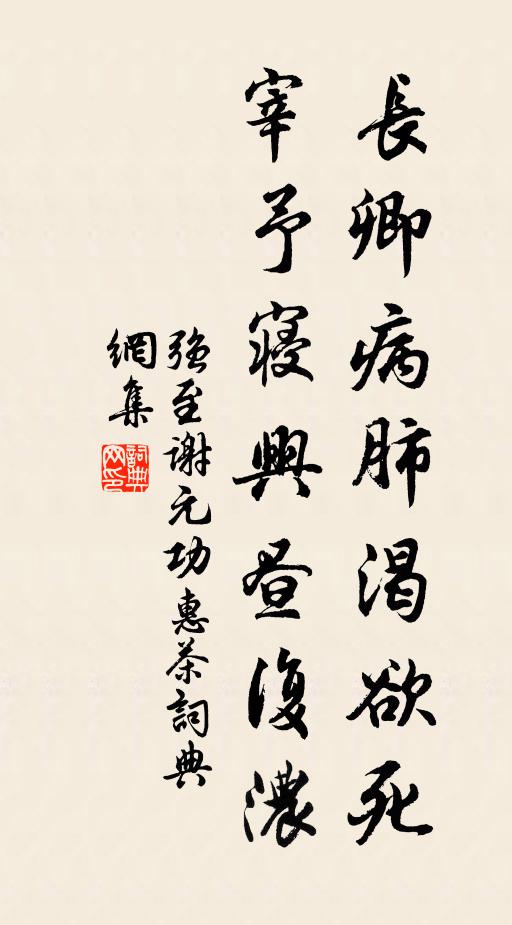 長卿病肺渴欲死
宰予寢興昼復濃
強至謝元功惠茶詞典
網集
詞典
网印